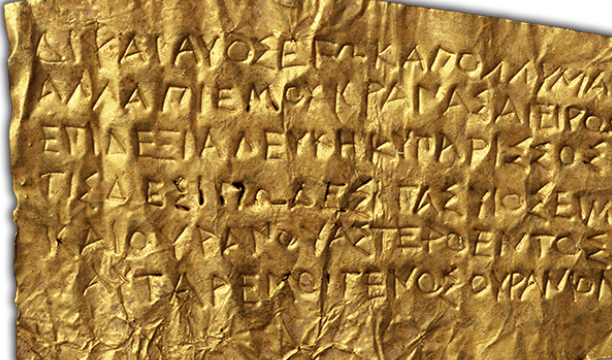 ΔΙΨΑΙΑΥΟΣΕΓΩΚΑΠΟΛΛΥΜΑ
ΑΛΛΑΠΙΕΜΟΥΚΡΑΝΑΣΑΙΕΙΡΟ
ΕΠΙΔΕΞΙΑΛΕΥΚΗΚΥΠΑΡΙΣΣΟΣ
ΤΙΣΔΕΣΙΠΩΔΕΣΙΓΑΣΥΙΟΣΕΙΜ
ΚΑΙΟΥΡΑΝΟΥΑΣΤΕΡΟΕΝΤΟΣ
ΑΥΤΑΡΕΜΟΙΓΕΝΟΣΟΥΡΑΝΙΟΝ